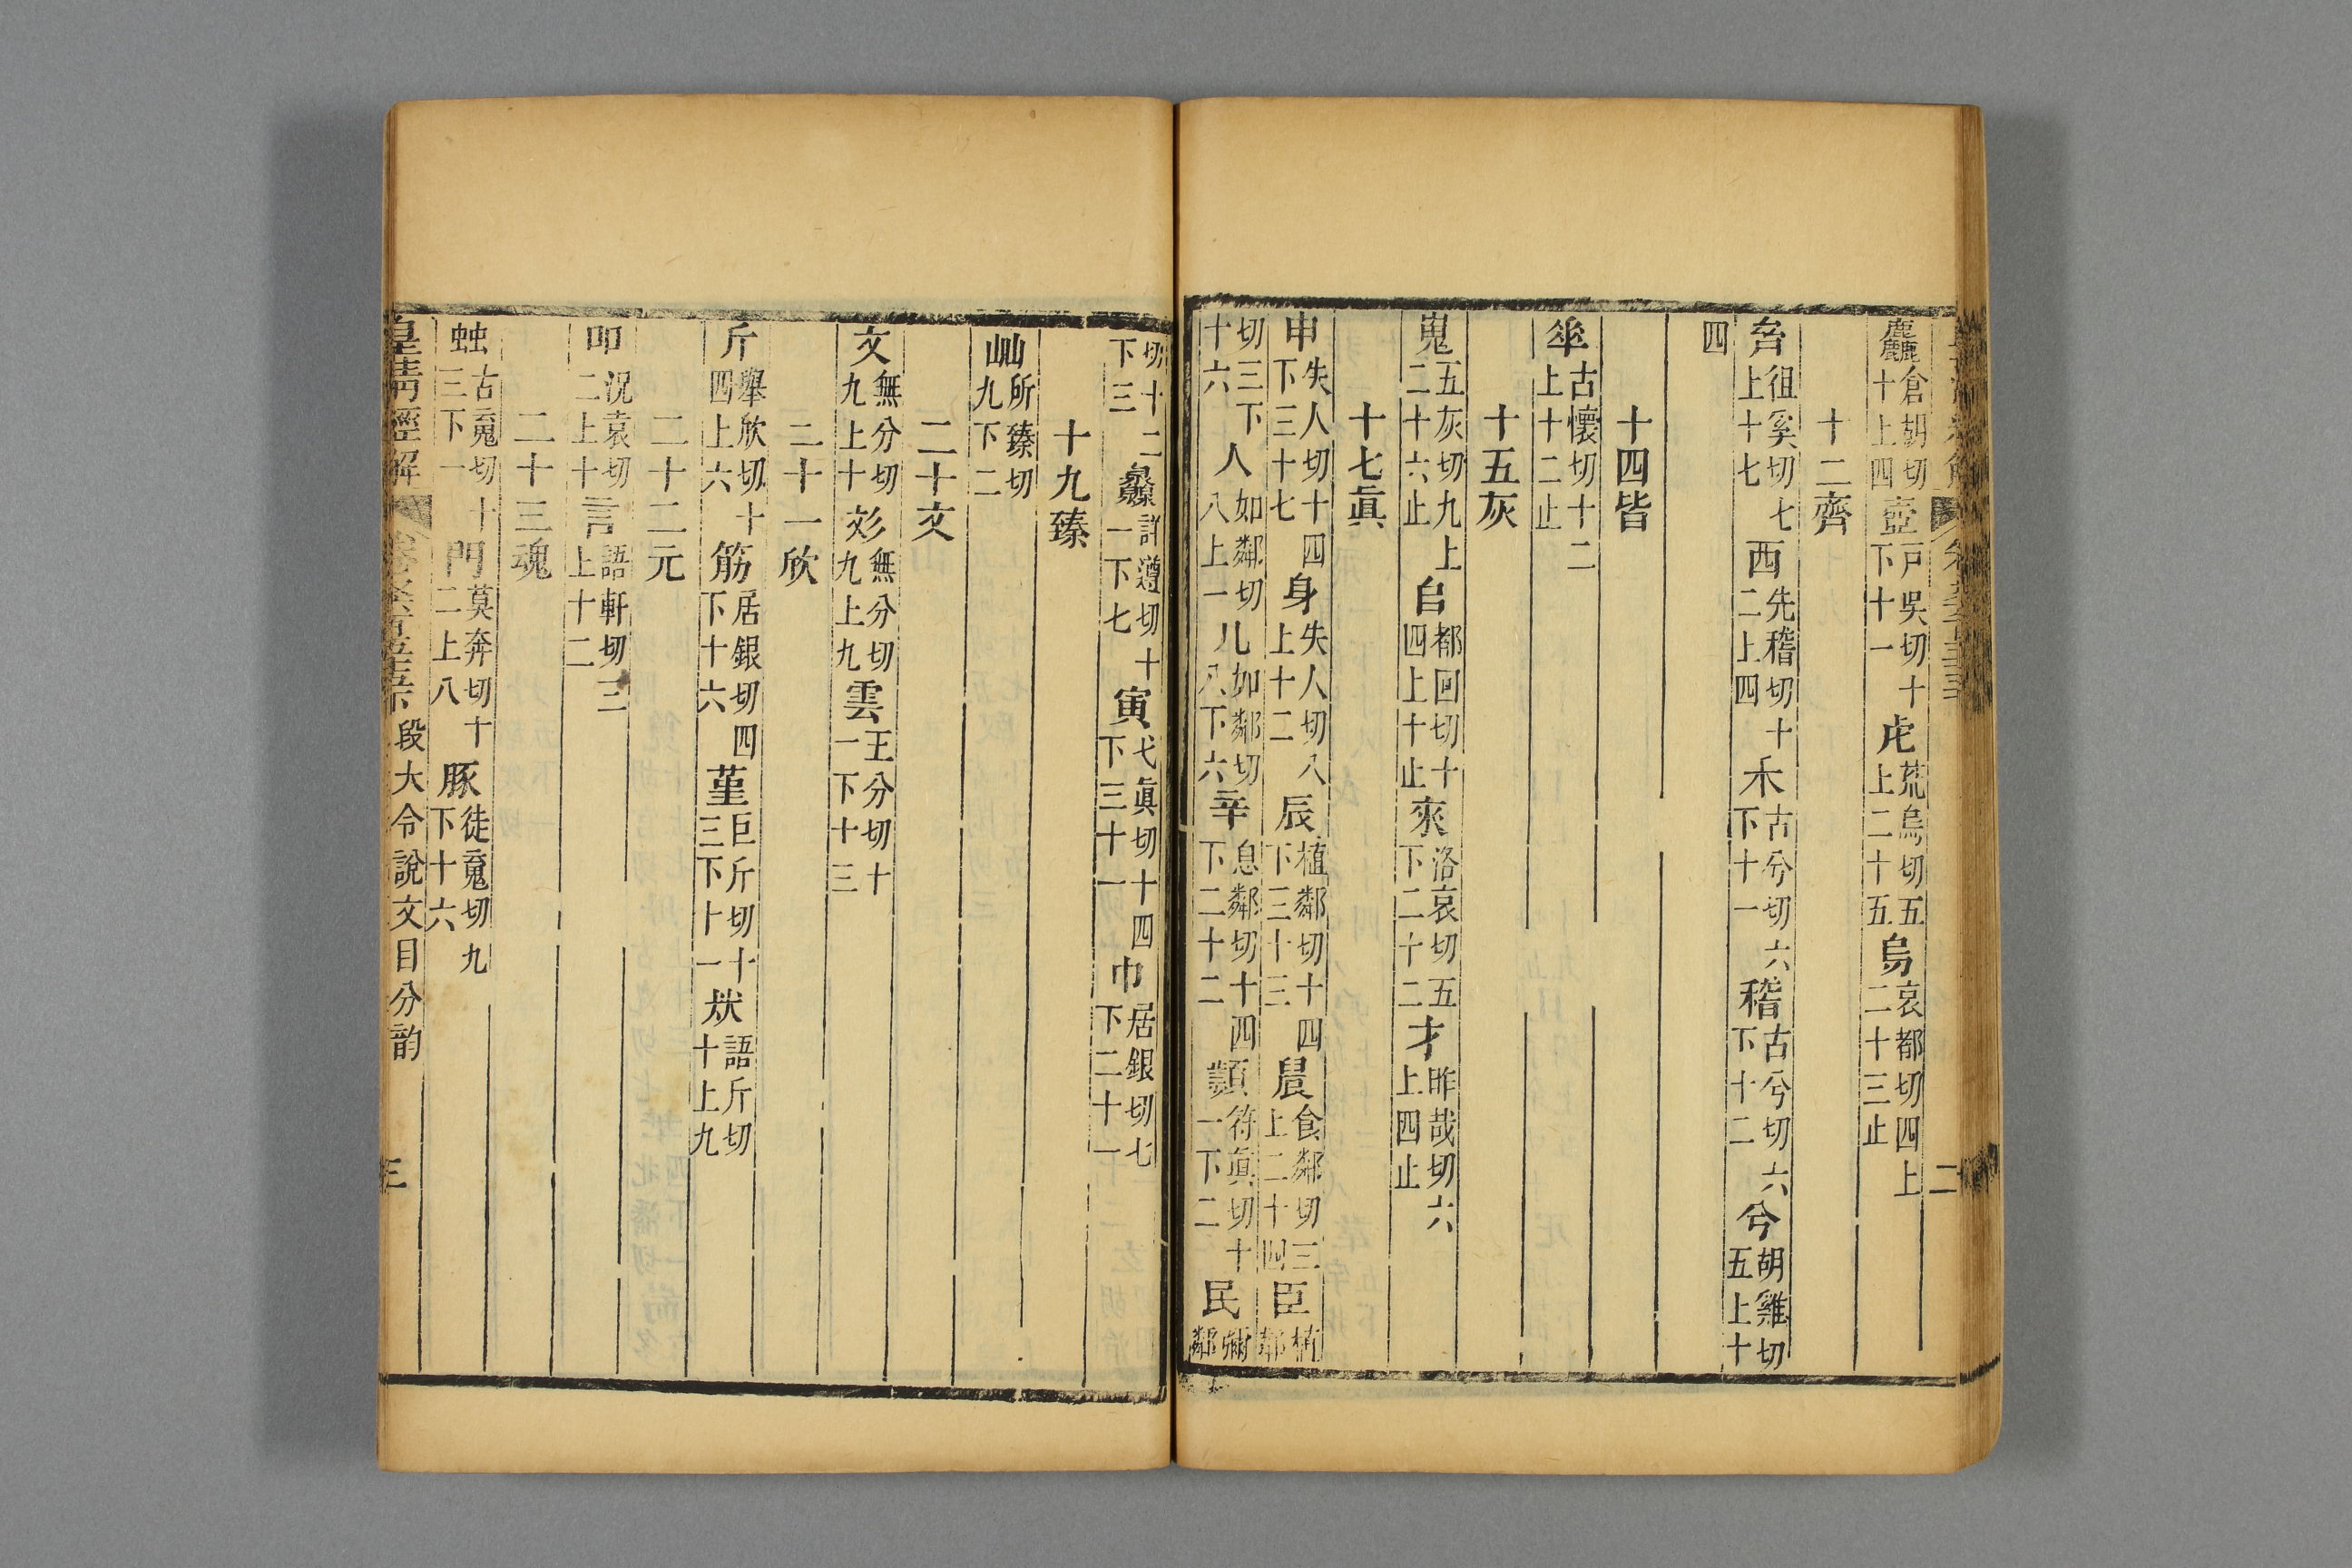 二
麤倉胡切十上四壺戶吳切十下十一虍荒烏切五上二十五烏哀都切四上二十三止
十二齊
齊徂奚切七上十七西先稽切十二上四禾古兮切六下十一稽古兮切六下十二兮胡雞切五上十
四
十四皆
𠦬古懷切十二上十二止
十五灰
嵬五灰切九上二十六止𠂤都回切十四上十止來洛哀切五下二十二才昨哉切六上四止
十七眞
申失人切十四下三十七身失人切八上十二辰植鄰切十四下三十三晨食鄰切三上二十四臣植鄰
切三下十六人如鄰切八上一儿如鄰切八下六辛息鄰切十四下二十二頻符眞切十一下二民彌鄰
切十二下三灥詳遵切十一下七寅弋眞切十四下三十一巾居銀切七下二十一
十九臻
屾所臻切九下二
二十文
文無分切九上十彣無分切九上九雲王分切十一下十三
二十一欣
斤舉欣切十四上六筋居銀切四下十六堇巨斤切十三下十一㹜語斤切十上九
二十二元
吅況袁切二上十言語軒切三上十二
二十三魂
䖵古䰟切十三下一門莫奔切十二上八豚徒䰟切九下十六
皇清經解 段大令說文目分韵 三